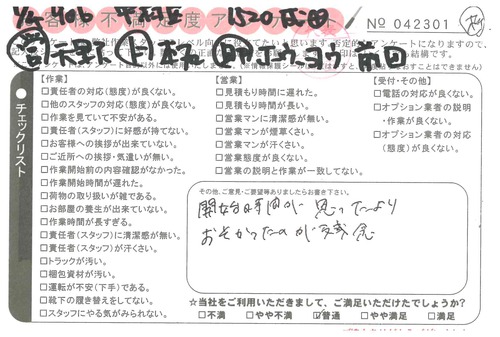 お客様 不満足度 アンケート
No 042301
チェックリスト
【作業】
□責任者の対応(態度)が良くない。
□他のスタッフの対応(態度)が良くない。
□作業を見ていて不安がある。
□責任者(スタッフ)に好感が持てない。
□お客様への挨拶が出来ていない。
□ご近所への挨拶・気遣いが無い。
□作業開始前の内容確認がなかった。
□作業開始時間が遅れた。
□荷物の取り扱いが雑である。
□お部屋の養生が出来ていない。
□作業時間が長すぎる。
□責任者(スタッフ)に清潔感が無い。
□責任者(スタッフ)が汗くさい。
□トラックが汚い。
□梱包資材が汚い。
□運転が不安(下手)である。
□靴下の履き替えをしてない。
□スタッフにやる気がみられない。
【営業】
□見積もり時間に遅れた。
□見積もり時間が長い。
□営業マンに清潔感が無い。
□営業マンが煙草くさい。
□営業マンが汗くさい。
□営業態度が良くない。
□営業の説明と作業が一致してない。
【受付・その他】
□電話の対応が良くない。
□オプション業者の説明
・作業が良くない。
□オプション業者の対応
(態度)が良くない。
その他、ご意見・ご要望等ありましたらお書き下さい。
開始時間が 思ったより
おそかったのが残念
☆当社をご利用いただきまして、ご満足いただけたでしょうか?
□不満 □やや不満 ☑普通 □やや満足 □満足